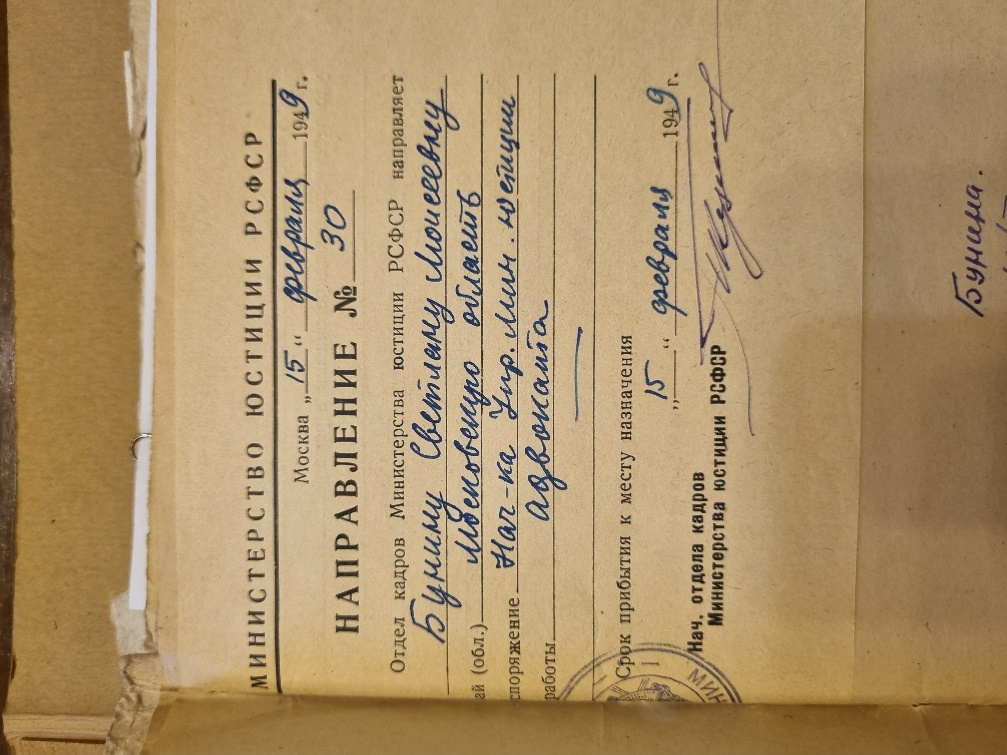 МИНИСТЕРСТВО ЮСТИЦИИ РСФСР
Москва „15“ февраля 1949 г.
НАПРАВЛЕНИЕ № 30
Отдел кадров Министерства юстиции РСФСР направляет
Бунину Светлану Моисеевну
ай (обл.) Московскую область
споряжение Нач-ка Упр. Мин. юстиции
работы адвоката
Срок прибытия к месту назначения
„15“ февраля 1949 г.
Нач. отдела кадров
Министерства юстиции РСФСР
МИН
Бунина.